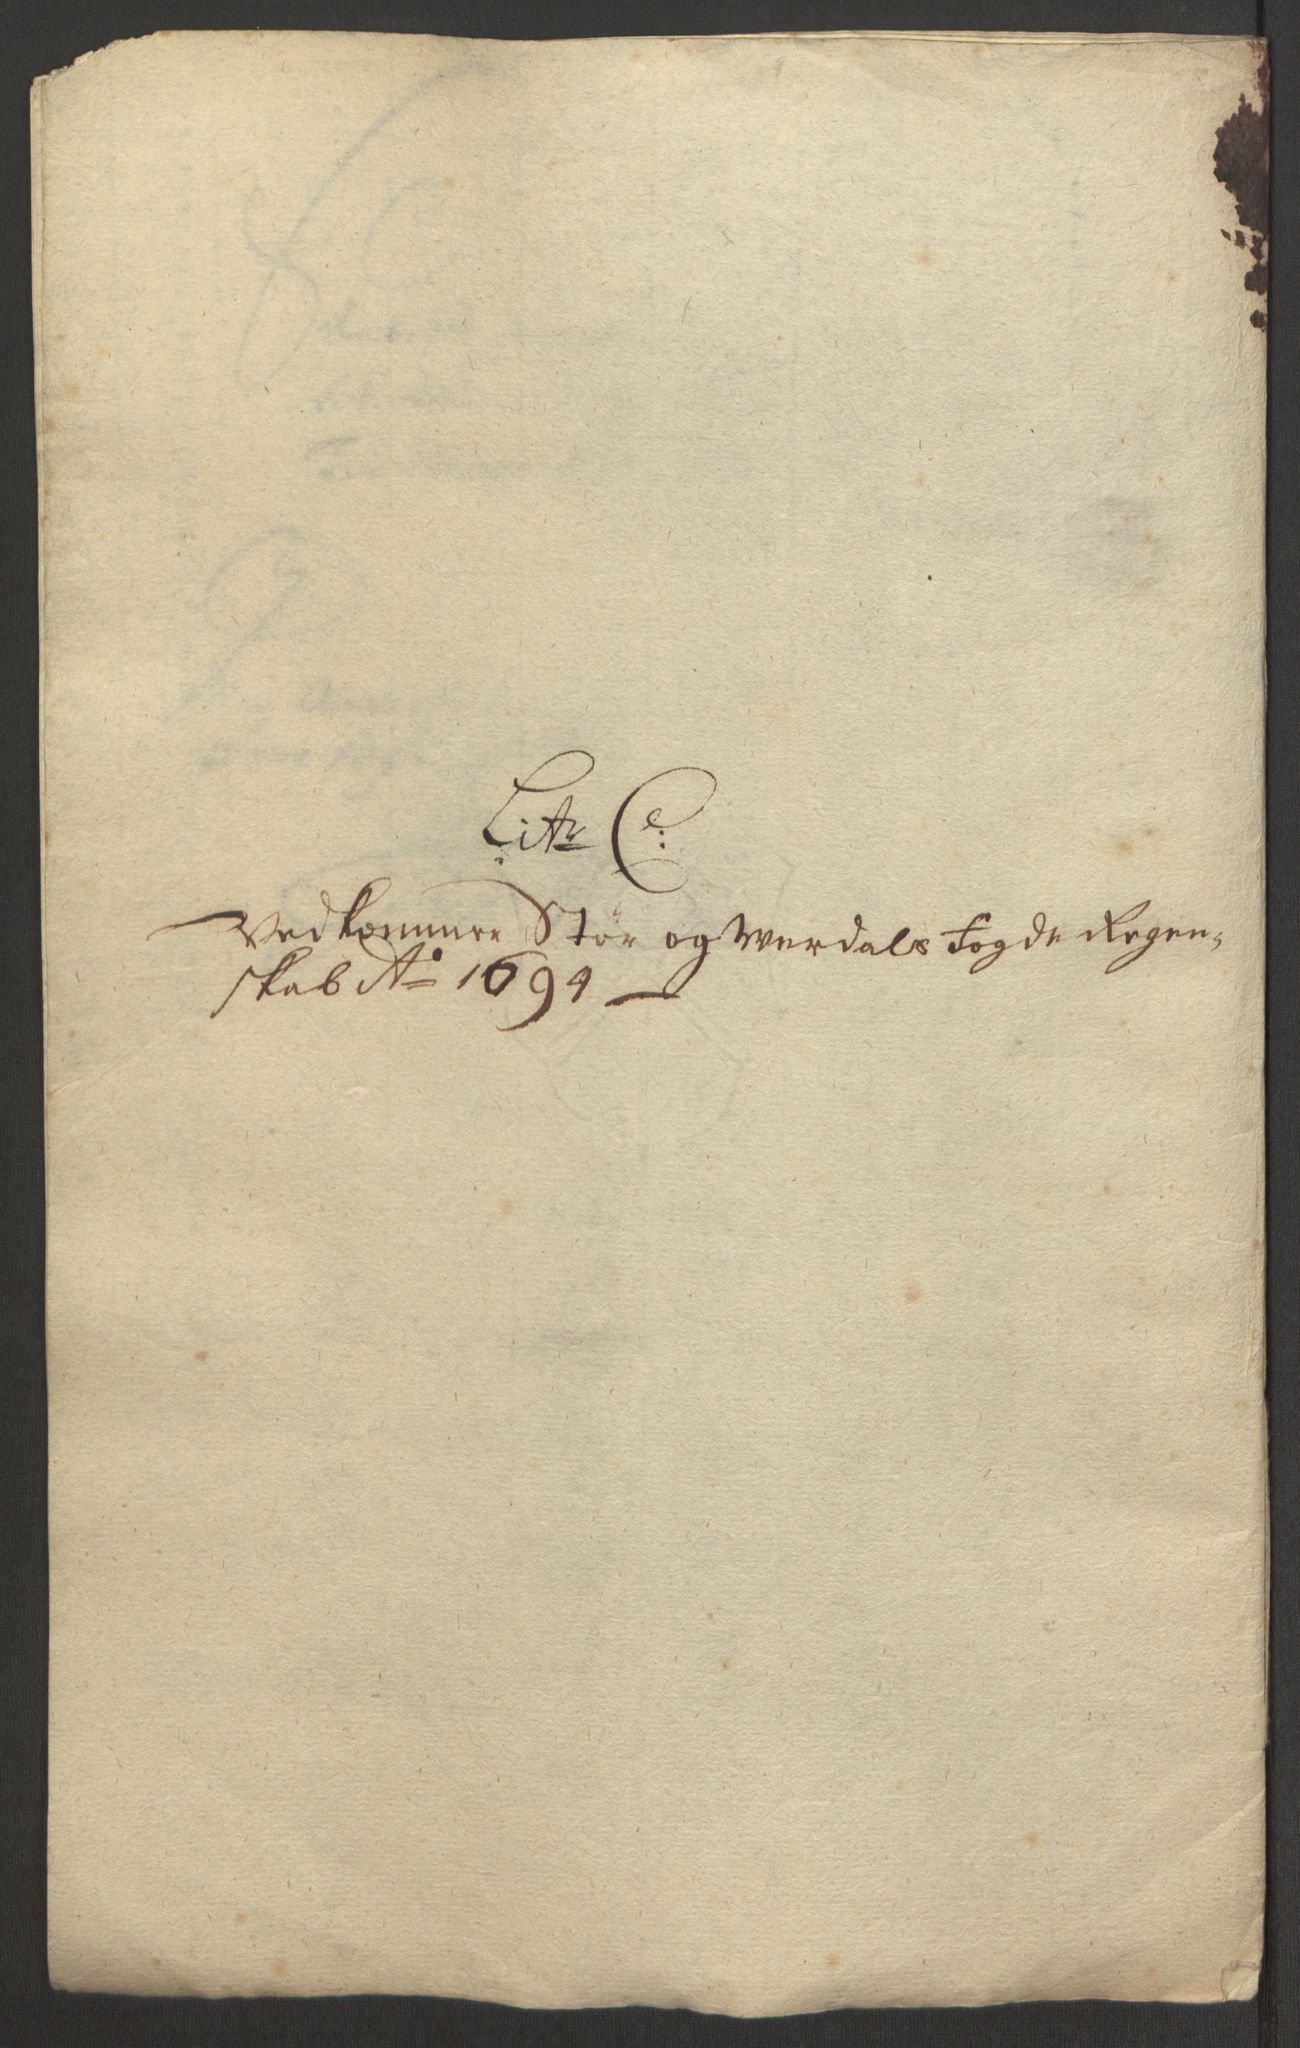 Litr C:
Vedkommer Stør og Werdals Fogde Regen-
skab Ao 1694